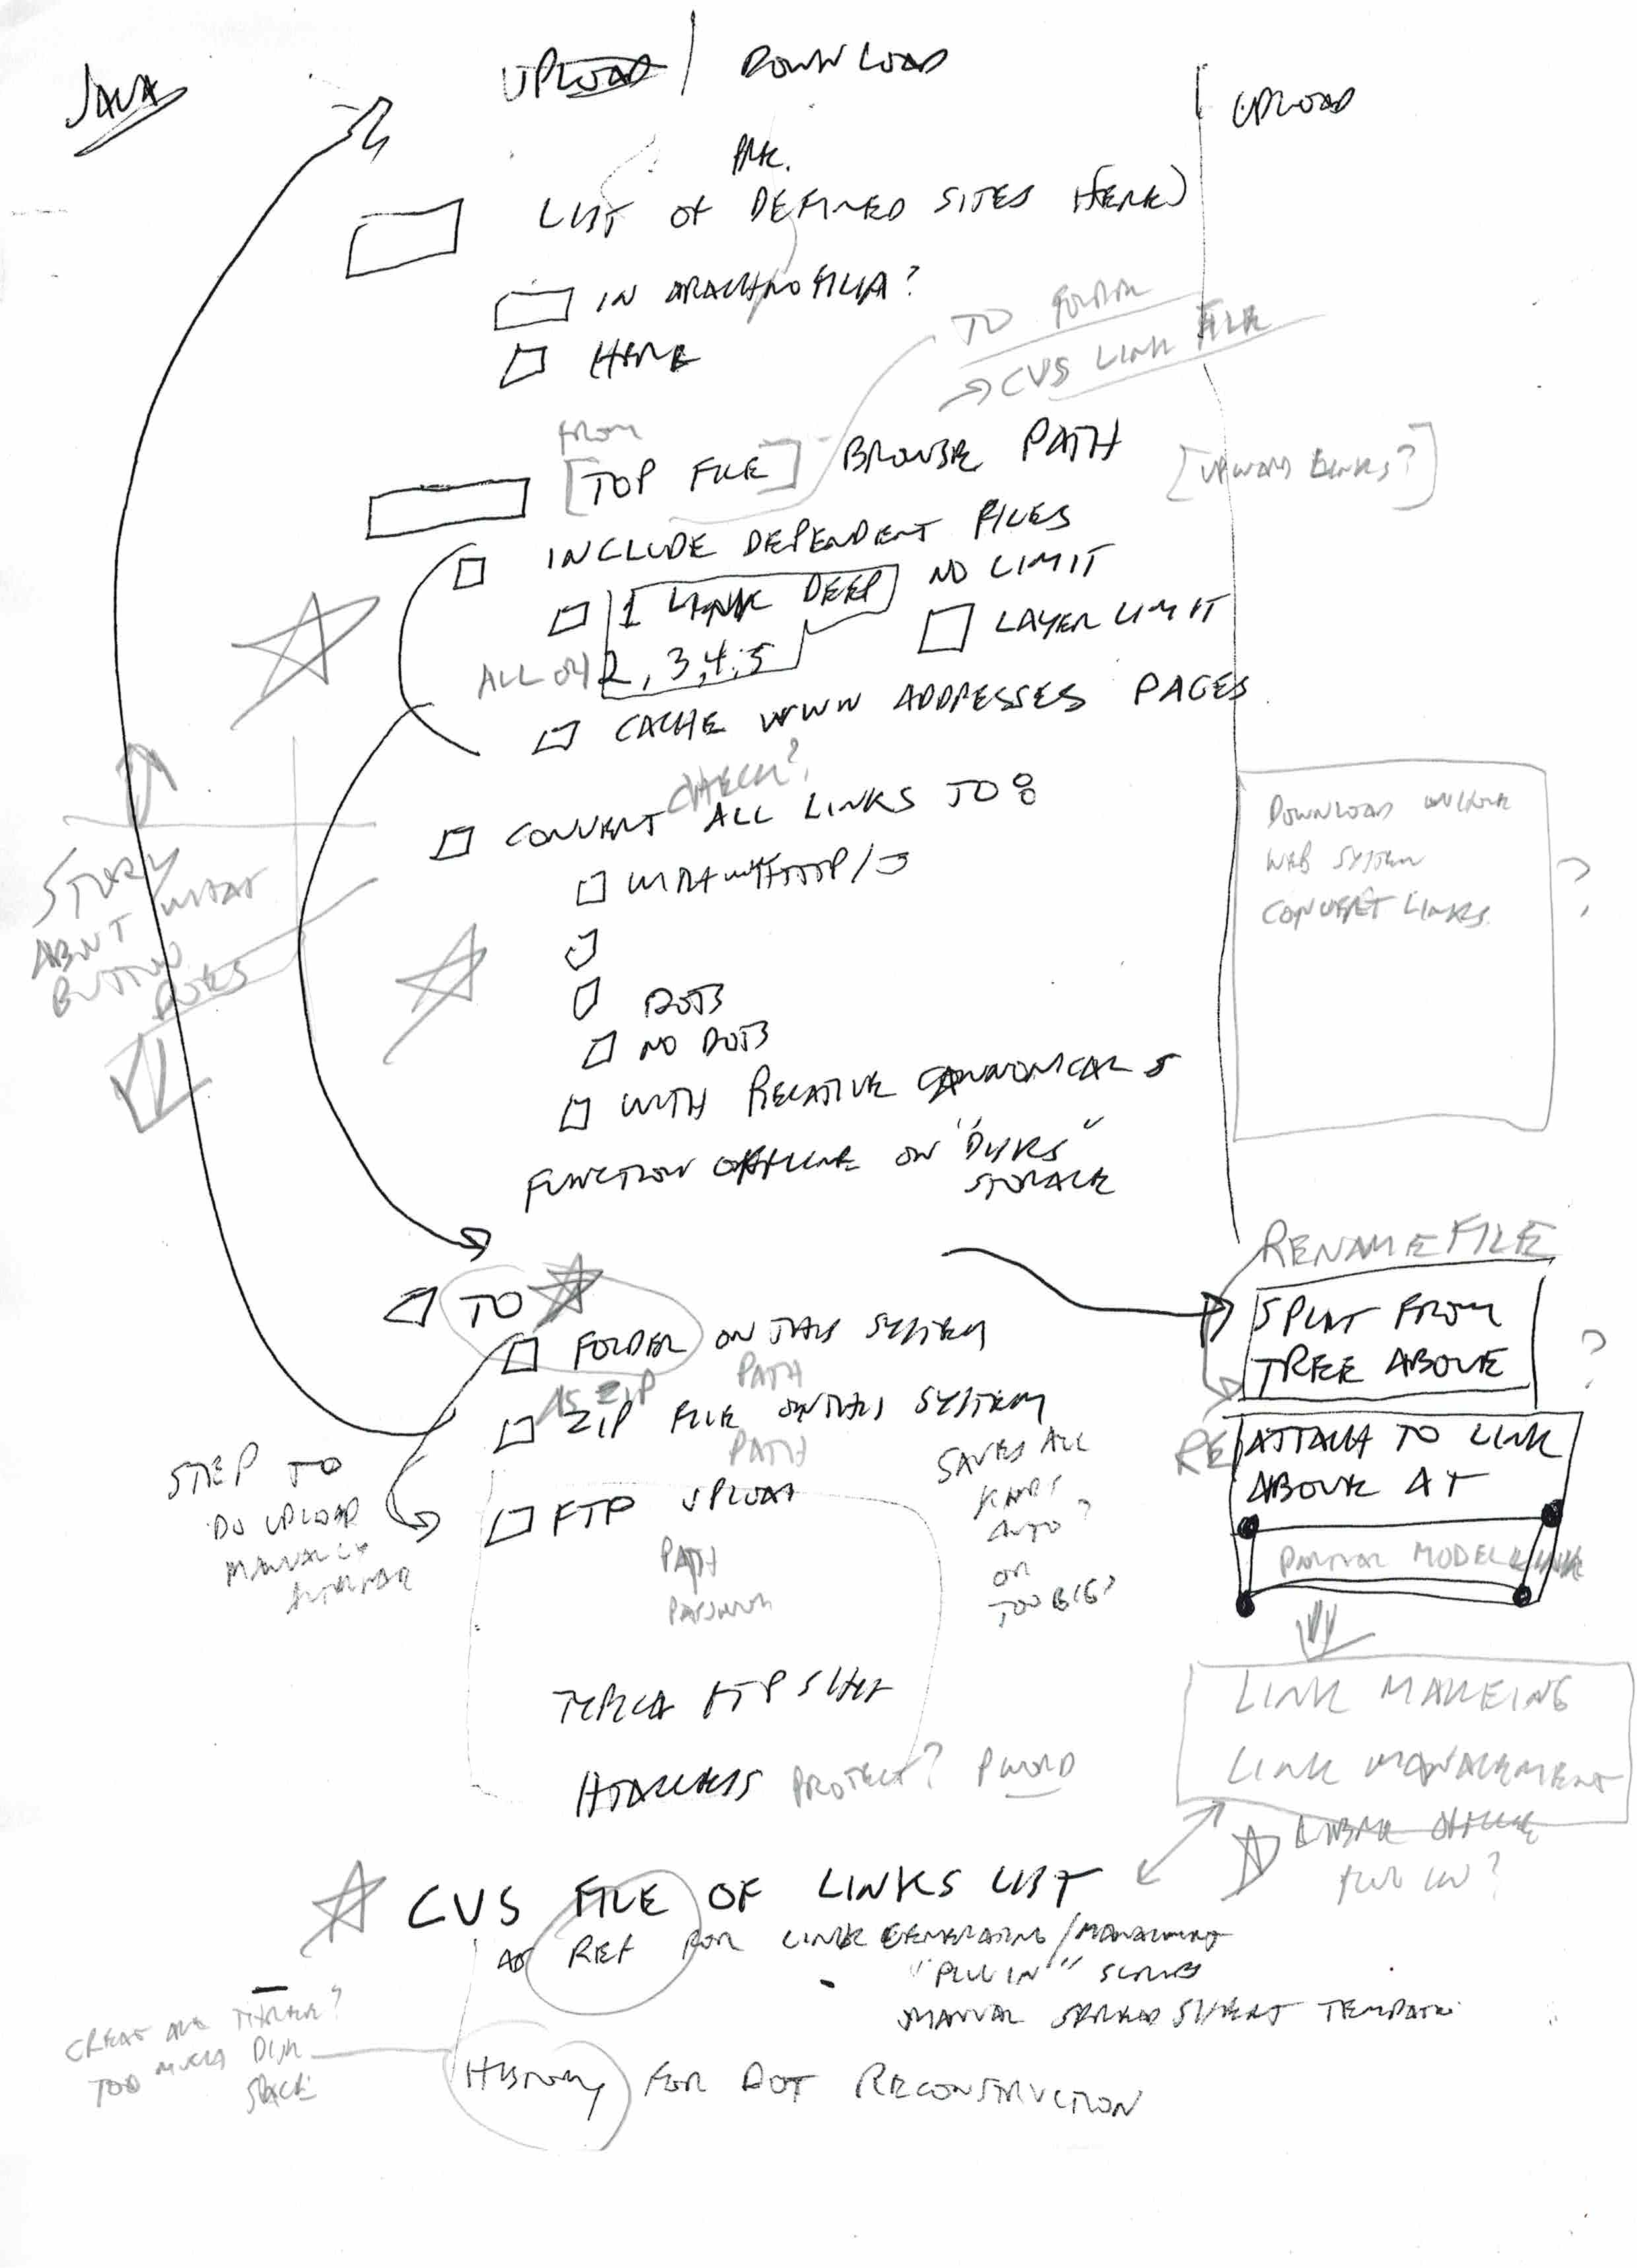 JAVA
UPLOAD / DOWNLOAD
UPLOAD
LIST OF DEFINED SITES HERE)
IN ARACHNOFILIA?
HERE
TO FOLDER
→ CVS LINK FILE
FROM
[TOP FILE] BROWSE PATH
[UPWARD LINKS?]
INCLUDE DEPENDENT FILES
1 LINK DEEP NO LIMIT
LAYER LIMIT
ALL OR 2, 3, 4, 5
CACHE WWW ADDRESSES PAGES
CHECK?
CONVERT ALL LINKS TO:
HTTP/
DOTS
NO DOTS
WITH RELATIVE CANNONICALS
FUNCTION OFFLINE ON "DISKS"
STORAGE
STORY
ABOUT WHAT
BUTTON
DOES
DOWNLOAD WHOLE
WEB SYSTEM
CONVERT LINKS
?
TO
FOLDER ON THIS SYSTEM
AS ZIP PATH
ZIP FILE ON THIS SYSTEM
PATH
FTP UPLOAD
PATH
STEP TO
DO UPLOAD
MANUALLY
SAVES ALL
AUTO?
OR
TOO BIG?
FTP
HTACCESS PROTECT? PWORD
RENAME FILE
SPLIT FROM
TREE ABOVE
?
RE ATTACH TO LINK
ABOVE AT
MODEL LINK
LINK MAKEING
LINK MANAGEMENT
CVS FILE OF LINKS LIST
AS REF FOR LINK GENERATING/MANAGEMENT
"PLUG IN"
MANUAL SPREADSHEET TEMPLATE
TOO MUCH DISK
SPACE
HISTORY FOR DOT RECONSTRUCTION